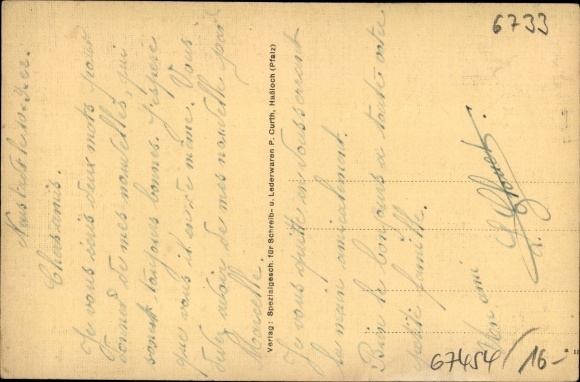 6733
Chers amis.
Je vous écris deux mots pour
donner de mes nouvelles, qui
sont toujours bonnes. J'espère
que vous il en est de même. Vous
de mes nouvelles par
Verlag: Spezialgesch. für Schreib- u. Lederwaren P. Curth, Haßloch (Pfalz)
Je vous quitte en vous serrant
la main amicalement.
Bien le bonjour de toute votre
petite famille.
Mon ami
67454/16-